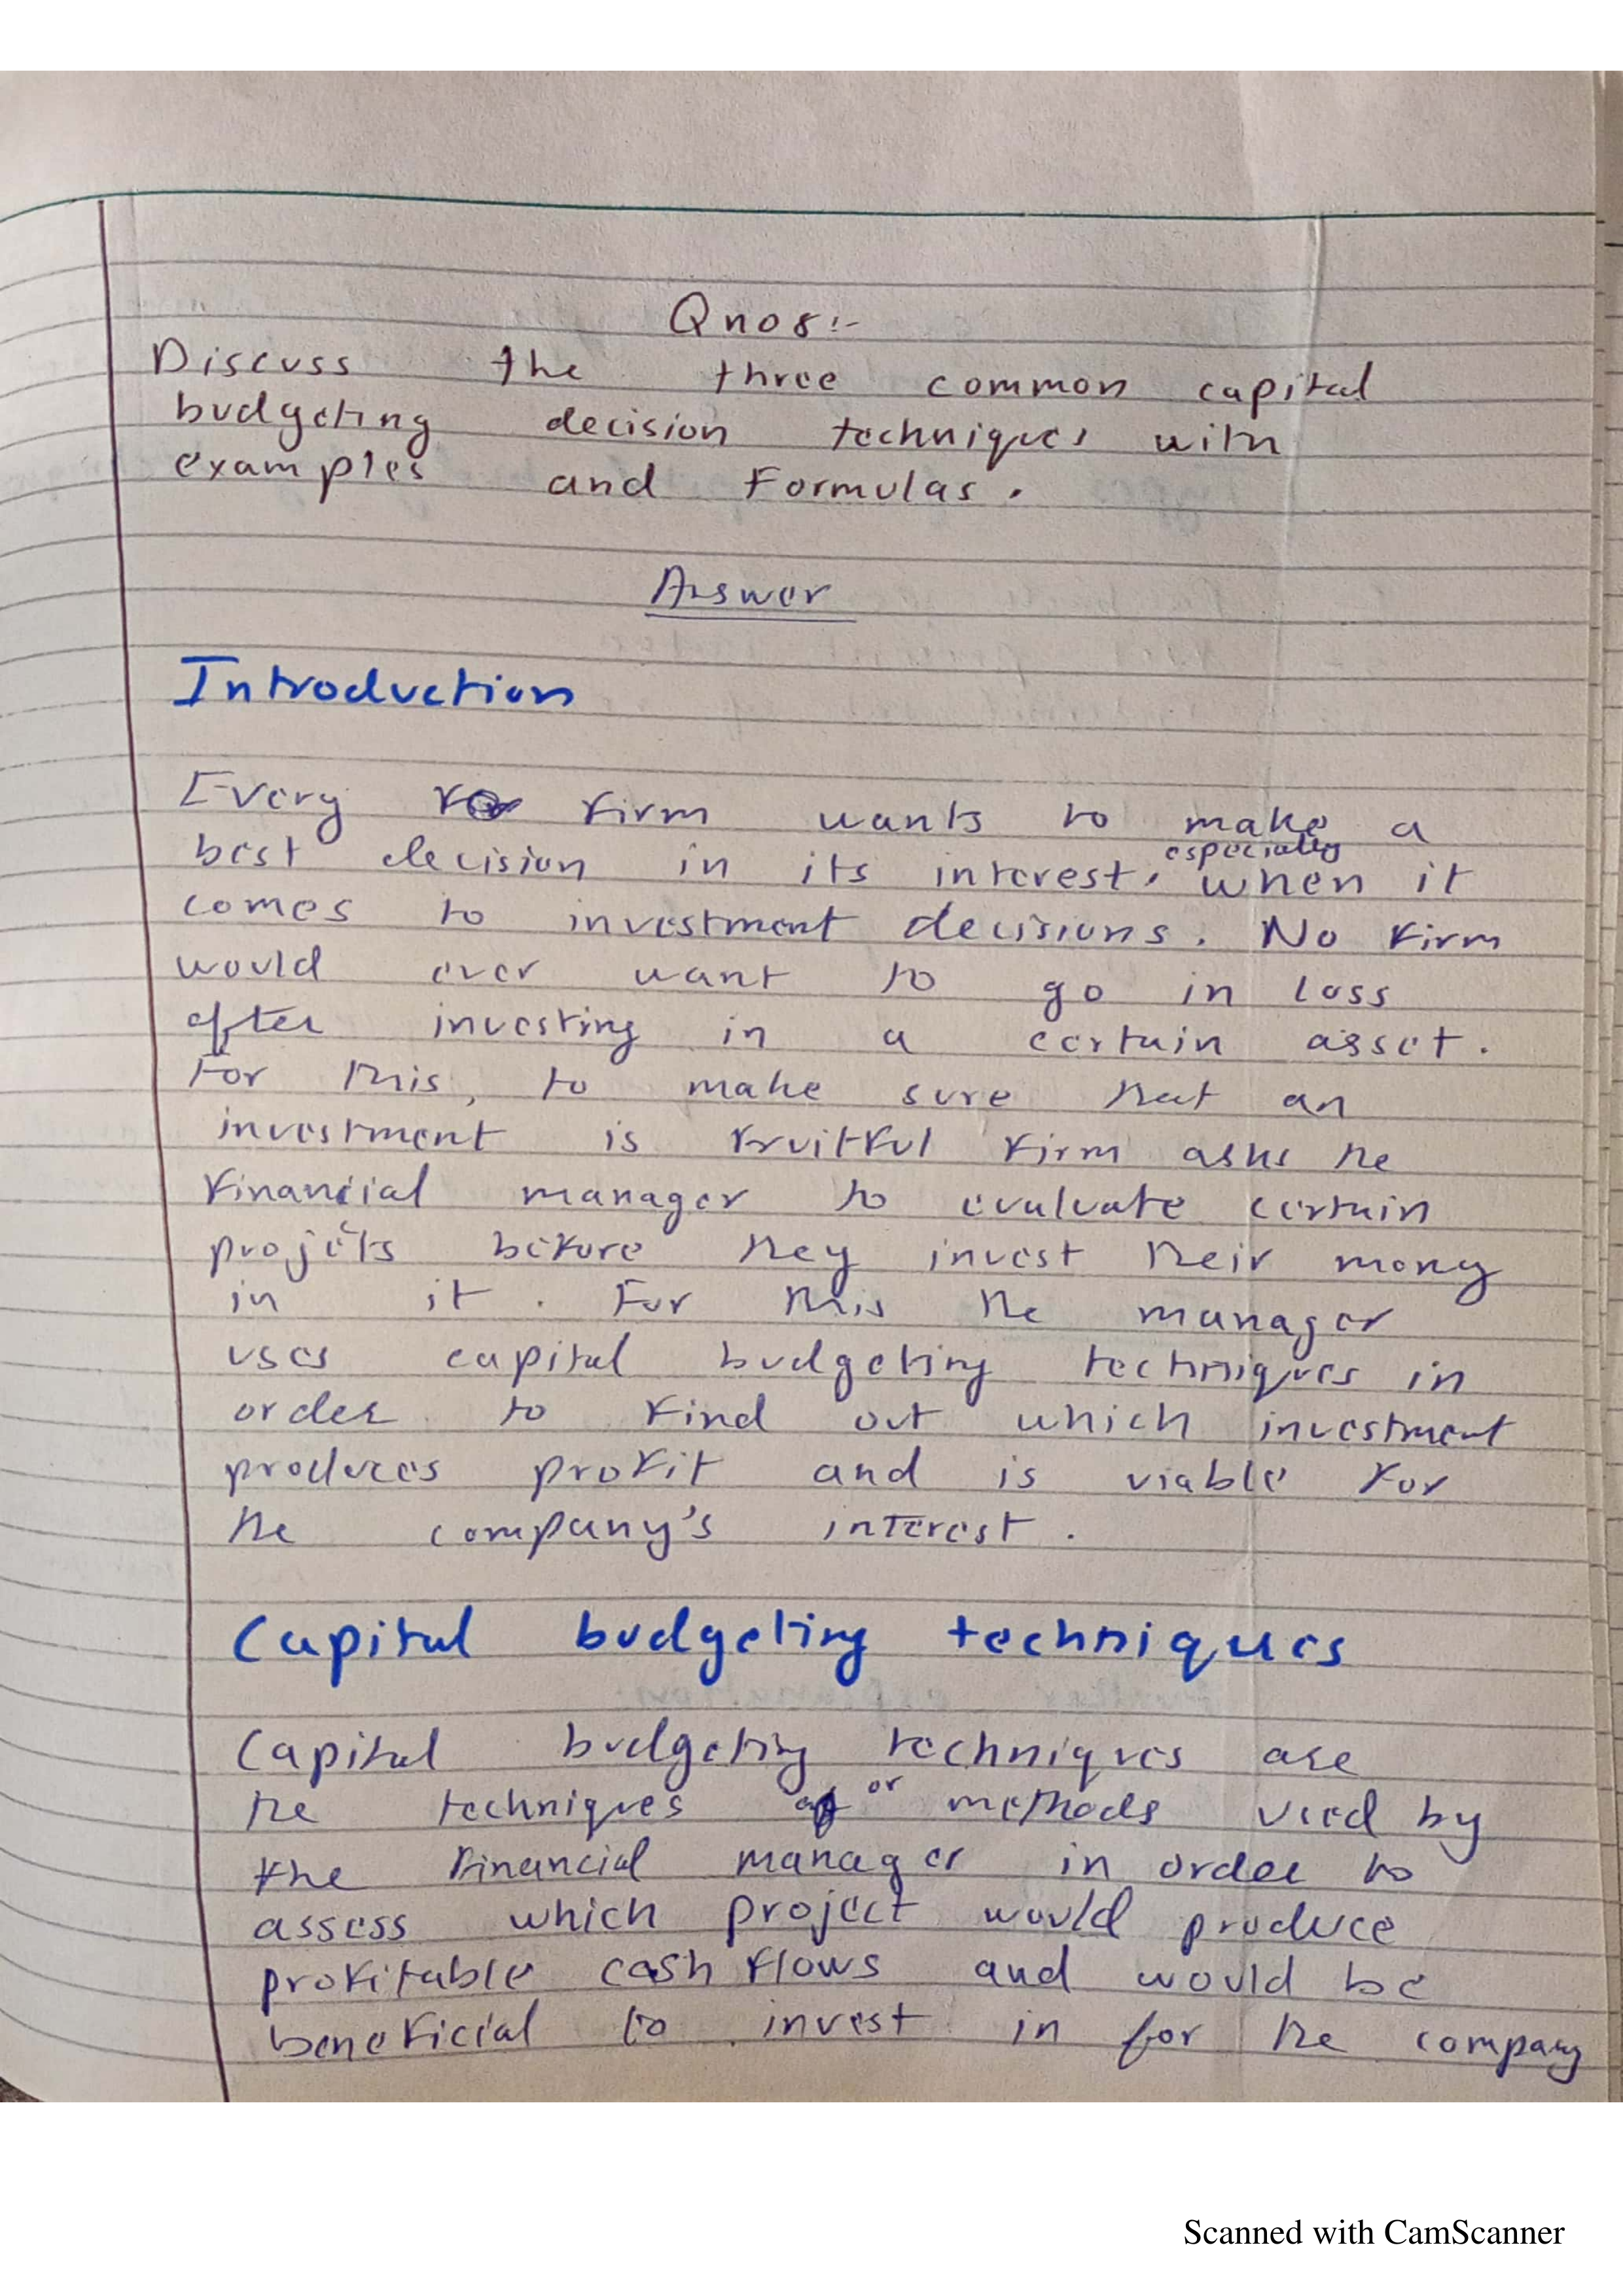 Qno8:-
Discuss the three common capital
budgeting decision techniques with
examples and Formulas.
Answer
Introduction
Every firm wants to make a
best decision in its interest, especially when it
comes to investment decisions. No firm
would ever want to go in loss
after investing in a certain asset.
For this, to make sure that an
investment is fruitful firm asks the
financial manager to evaluate certain
projects before they invest their mony
in it. For this the manager
uses capital budgeting techniques in
order to find out which investment
produces profit and is viable for
the company's interest.
Capital budgeting techniques
Capital budgeting techniques are
the techniques or methods used by
the financial manager in order to
assess which project would produce
profitable cash flows and would be
beneficial to invest in for the company
Scanned with CamScanner